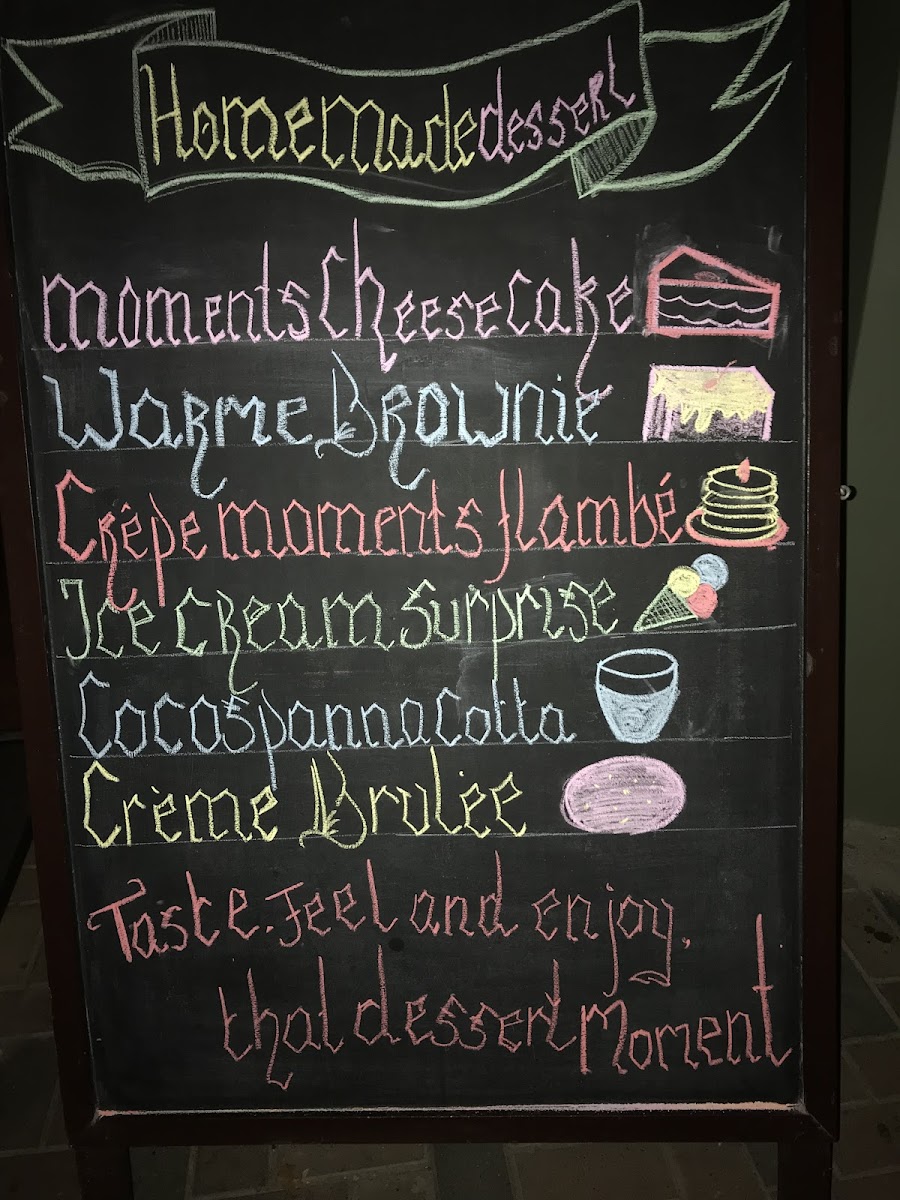 Homemade dessert
moments Cheesecake
Warme Brownie
Crêpe moments flambé
Ice cream surprise
Cocos panna cotta
Crème Brulèe
Taste. Feel and enjoy,
that dessert Moment